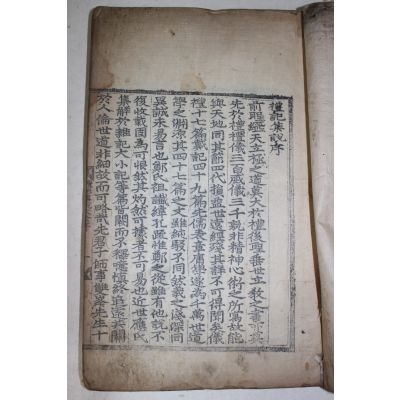 禮記集說序
前聖繼天立極之道莫大於禮後聖垂世立教之書亦莫
先於禮禮儀三百威儀三千孰非精神心術之所寓故能
與天地同其節四代損益世遠經殘其詳不可得聞矣儀
禮十七篇戴記四十九篇先儒表章庸學遂為千萬世道
學之淵源其四十七篇之文雖純駁不同然義之淺深同
異誠未易言也鄭氏祖讖緯孔疏惟鄭之從雖有他說不
復收載固為可恨然其灼然可據者不可易也近世應氏
集解於雜記大小記等篇皆闕而不釋噫愼終追遠其關
於人倫世道非細故而可略哉先君子師事雙峯先生十